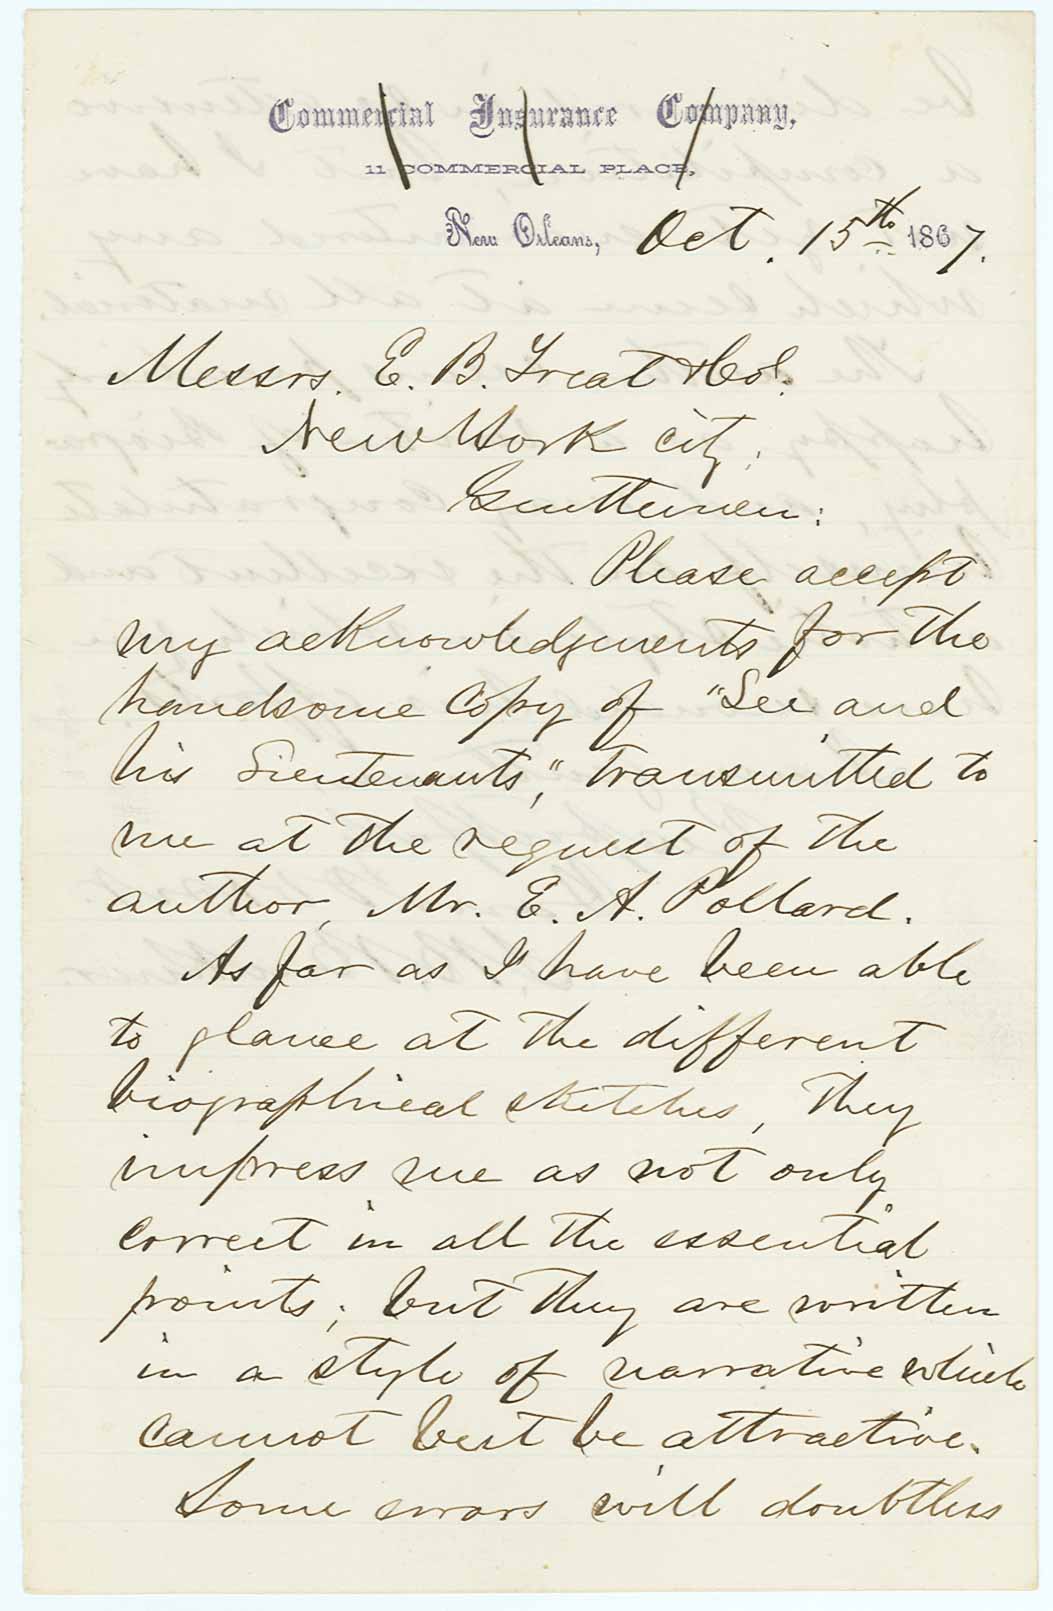 Commercial Insurance Company,
11 COMMERCIAL PLACE,
New Orleans, Oct. 15th 1867.
Messrs. E. B. Treat & Co.
New York city,
Gentlemen:
Please accept
my acknowledgments for the
handsome copy of "Lee and
his Lieutenants," transmitted to
me at the request of the
author, Mr. E. A. Pollard.
As far as I have been able
to glance at the different
biographical sketches, they
impress me as not only
correct in all the essential
points; but they are written
in a style of narrative which
cannot but be attractive.
Some errors will doubtless